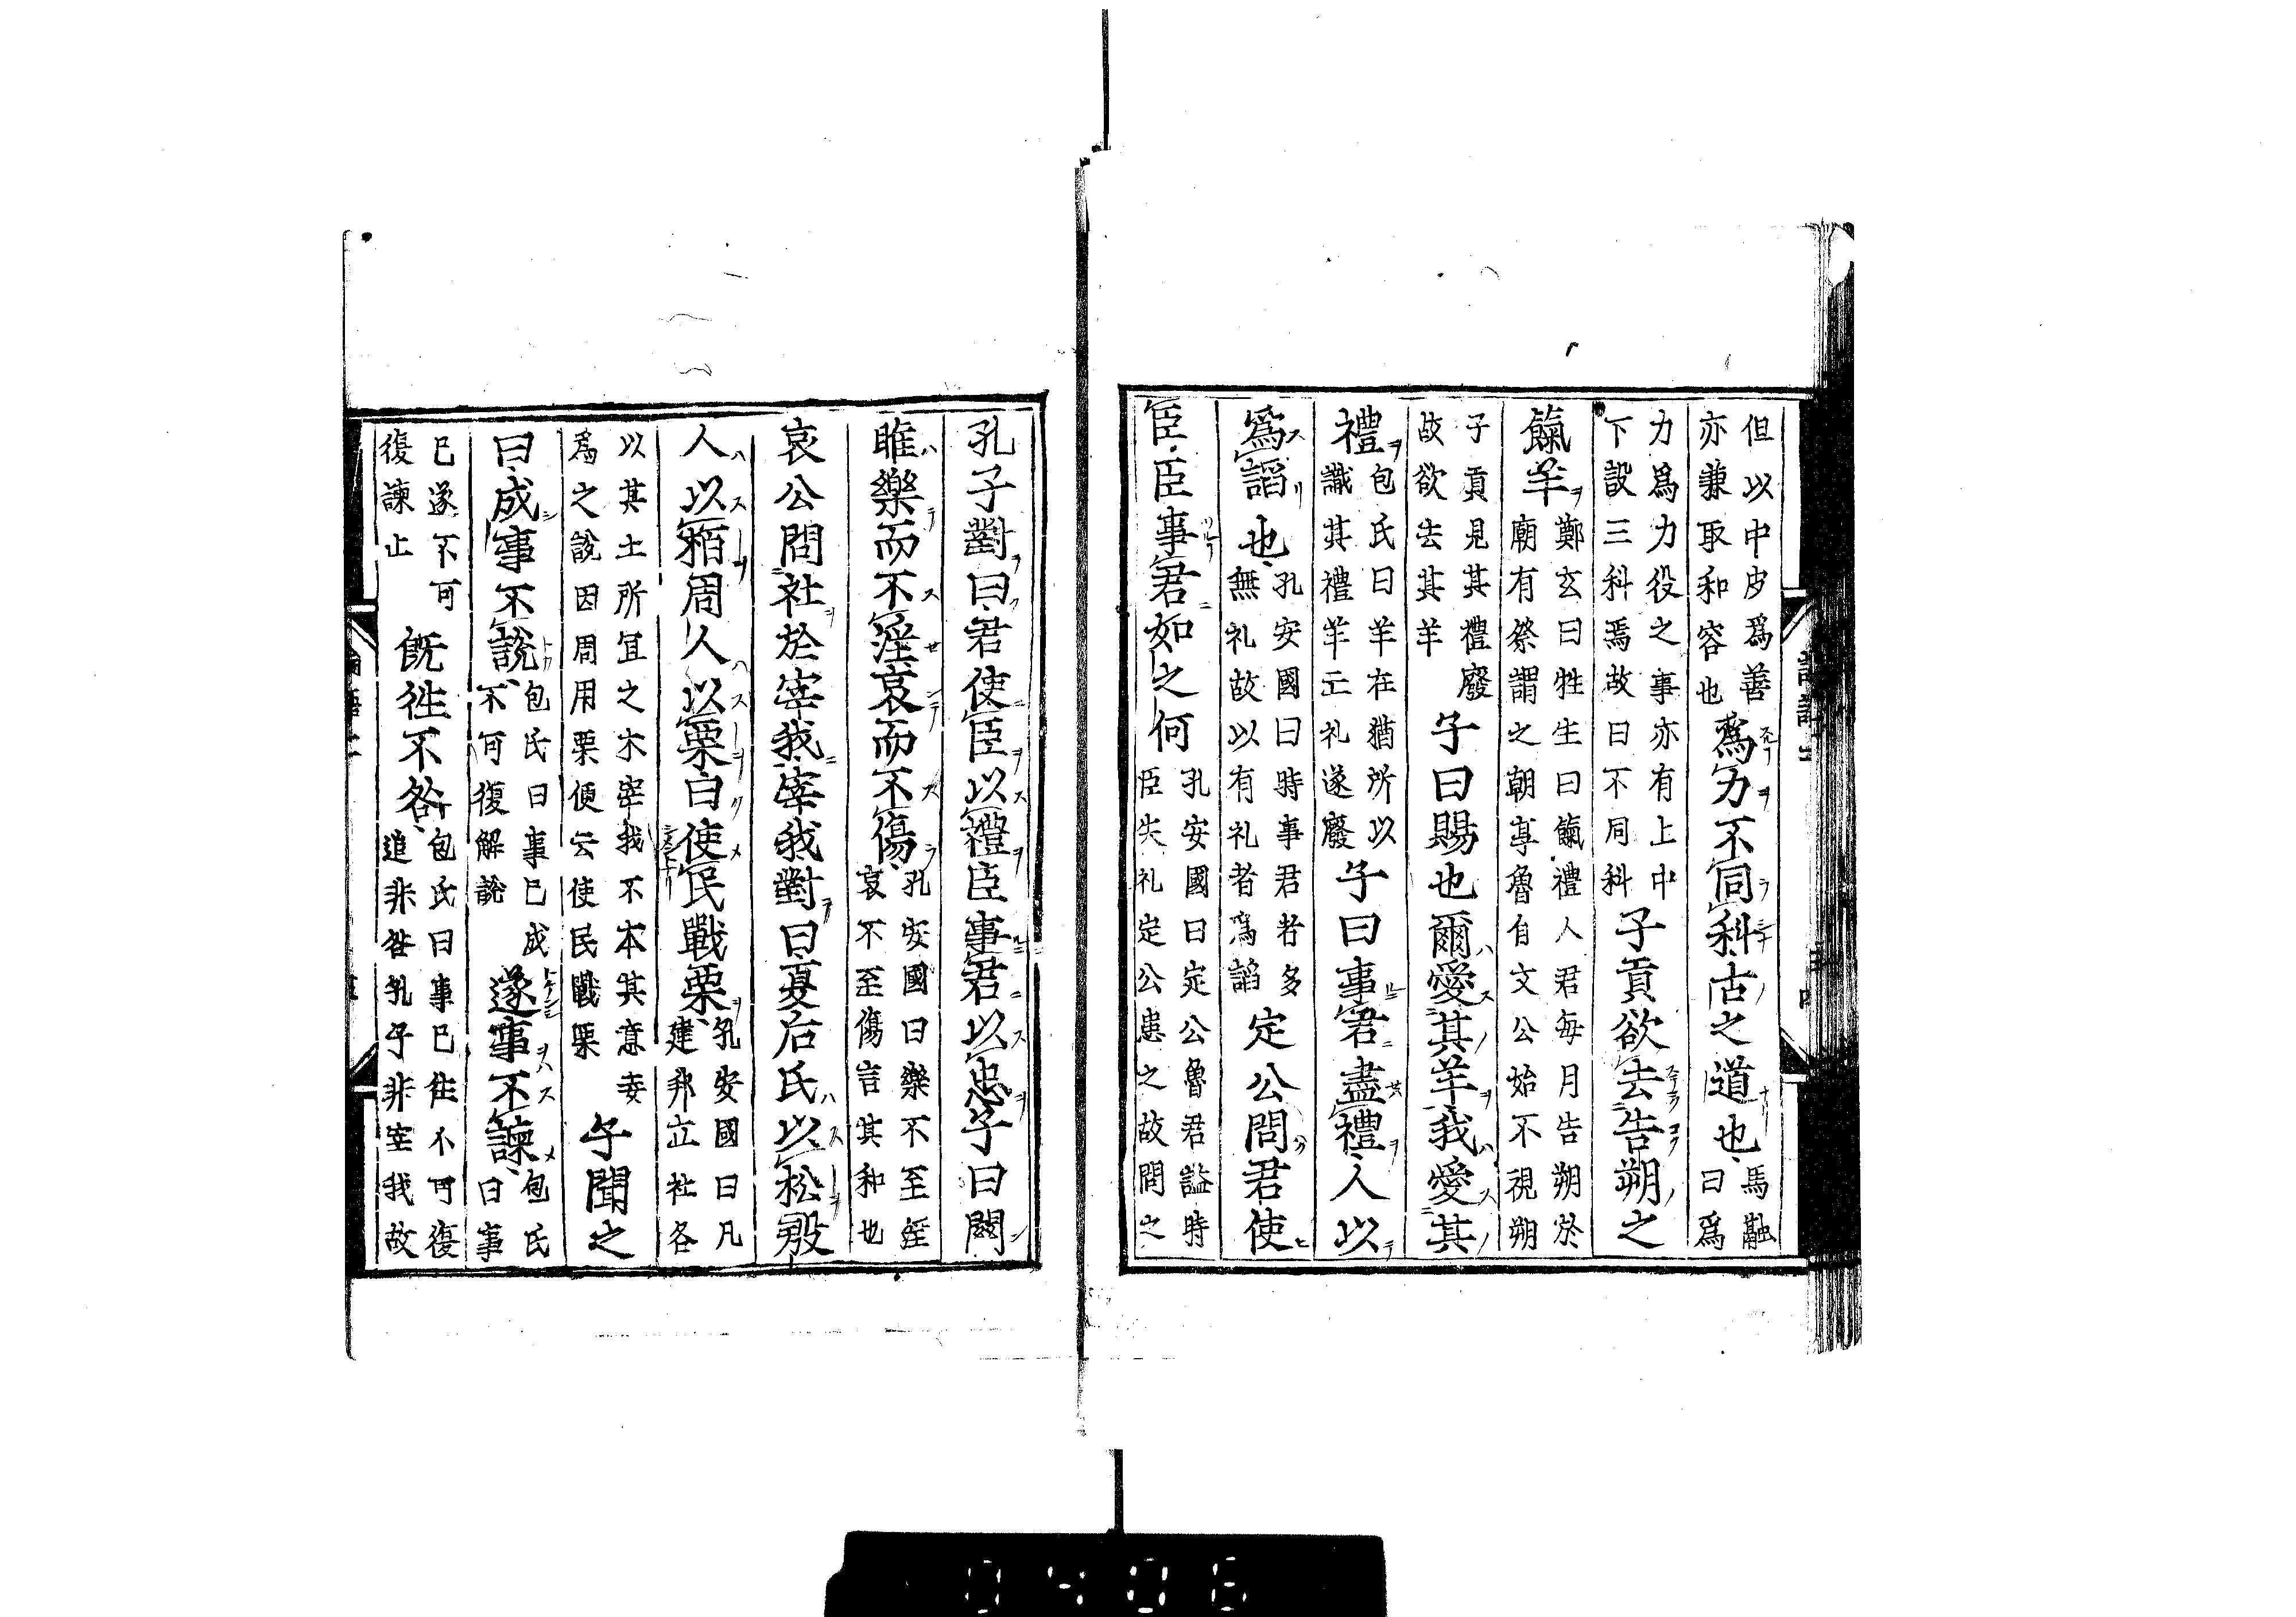 但以中皮爲善
亦兼取和容也
爲力不同科古之道也
馬融
曰爲
力爲力役之事亦有上中
下設三科焉故曰不同科
子貢欲去告朔之
餼羊
鄭玄曰牲生曰餼禮人君每月告朔於
廟有祭謂之朝享魯自文公始不視朔
子貢見其禮廢
故欲去其羊
子曰賜也爾愛其羊我愛其
禮
包氏曰羊在猶所以
識其禮羊亡礼遂廢
子曰事君盡禮人以
爲謟也
孔安國曰時事君者多
無礼故以有礼者爲謟
定公問君使
臣臣事君如之何
孔安國曰定公魯君謚時
臣失礼定公患之故問之
孔子對曰君使臣以禮臣事君以忠子曰關
雎樂而不淫哀而不傷
孔安國曰樂不至婬
哀不至傷言其和也
哀公問社於宰我宰我對曰夏后氏以松殷
人以栢周人以栗曰使民戰栗
孔安國曰凡
建邦立社各
以其土所冝之木宰我不本其意妄
爲之說因周用栗便云使民戰栗
子聞之
曰成事不說
包氏曰事已成
不可復解說
遂事不諫
包氏
曰事
已遂不可
復諫止
旣徃不咎
包氏曰事已徃不可復
追非咎孔子非宰我故